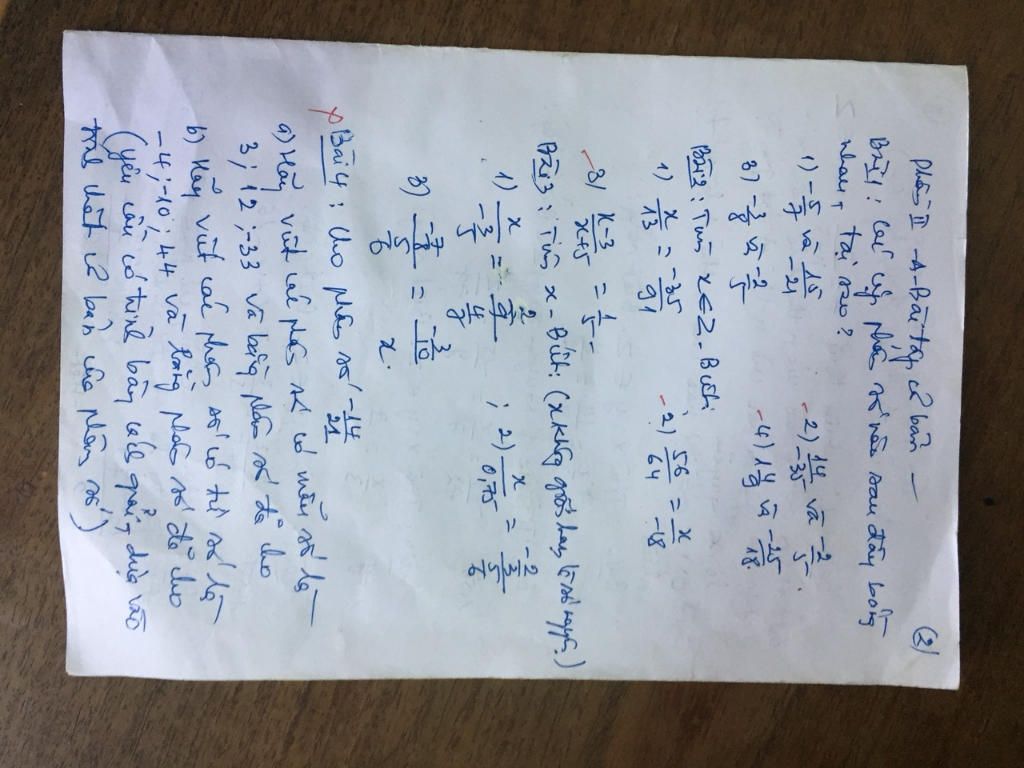 (2)
Phần II - A - Bài tập cơ bản -
Bài 1: Các cặp phân số nào sau đây bằng
nhau, tại sao?
1) -5/7 và 15/-21
- 2) 14/-35 và -2/5
3) -3/8 và -2/5
- 4) 14/9 và
Bài 2: Tìm x ∈ Z - Biết:
1) x/13 = -35/91
; - 2) 56/64 = x/-18
- 3) x-3/x+5 = 1/5
Bài 3: Tìm x - Biết: (x không nhất là số nguyên)
1)
; 2)
3)
x Bài 4: Cho phân số -14/21
a) Hãy viết các phân số có mẫu số là
3; 12; -33 và bằng phân số đã cho
b) Hãy viết các phân số có tử số là
-4; -10; 44 và bằng phân số đã cho
(yêu cầu có trình bày cách giải, dựa vào
tính chất cơ bản của phân số)